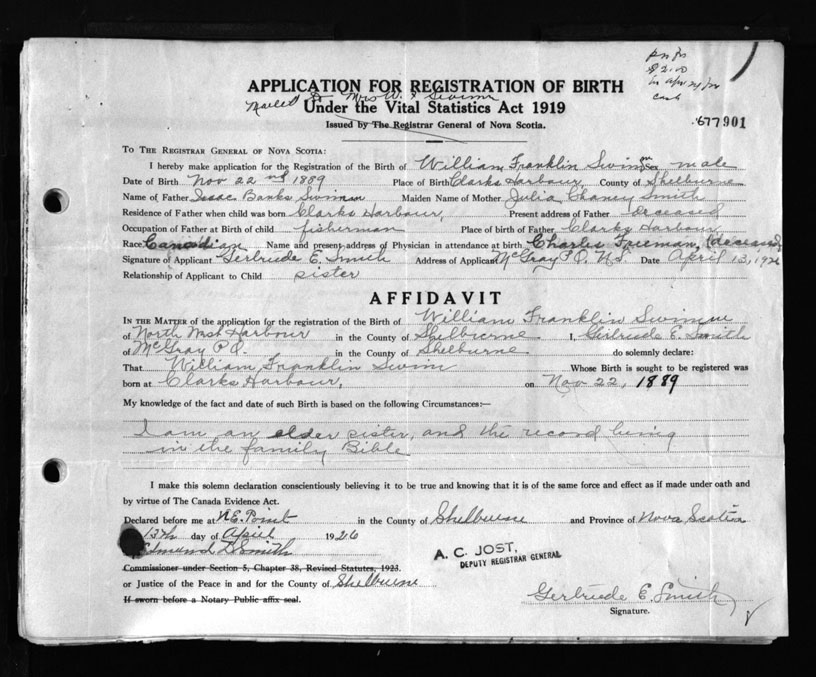 pd for
$2.00
cash
APPLICATION FOR REGISTRATION OF BIRTH
Mailed to Mrs W. F. Swimm
Under the Vital Statistics Act 1919
Issued by The Registrar General of Nova Scotia.
677901
TO THE REGISTRAR GENERAL OF NOVA SCOTIA:
I hereby make application for the Registration of the Birth of William Franklin Swimm Sex male
Date of Birth Nov 22nd 1889 Place of Birth Clarks Harbour, County of Shelburne
Name of Father Isaac Banks Swimm Maiden Name of Mother Julia Chaney Smith
Residence of Father when child was born Clarks Harbour, Present address of Father deceased
Occupation of Father at Birth of child fisherman Place of birth of Father Clarks Harbour
Race Canadian Name and present address of Physician in attendance at birth Charles Freeman, (deceased)
Signature of Applicant Gertriede E. Smith Address of Applicant McGray P.O. N.S. Date April 13, 1926
Relationship of Applicant to Child sister
AFFIDAVIT
IN THE MATTER of the application for the registration of the Birth of William Franklin Swimm
of North West Harbour in the County of Shelburne I, Gertriede E. Smith
of McGray P.O. in the County of Shelburne do solemnly declare:
That William Franklin Swim Whose Birth is sought to be registered was
born at Clarks Harbour, on Nov 22, 1889
My knowledge of the fact and date of such Birth is based on the following Circumstances:—
I am an elder sister, and the record being
in the family Bible
I make this solemn declaration conscientiously believing it to be true and knowing that it is of the same force and effect as if made under oath and
by virtue of The Canada Evidence Act.
Declared before me at N.E. Point in the County of Shelburne and Province of Nova Scotia
13th day of April 1926
Edmund D. Smith
Commissioner under Section 5, Chapter 38, Revised Statutes, 1923.
or Justice of the Peace in and for the County of Shelburne
If sworn before a Notary Public affix seal.
A. C. JOST,
DEPUTY REGISTRAR GENERAL
Gertriede E. Smith
Signature.